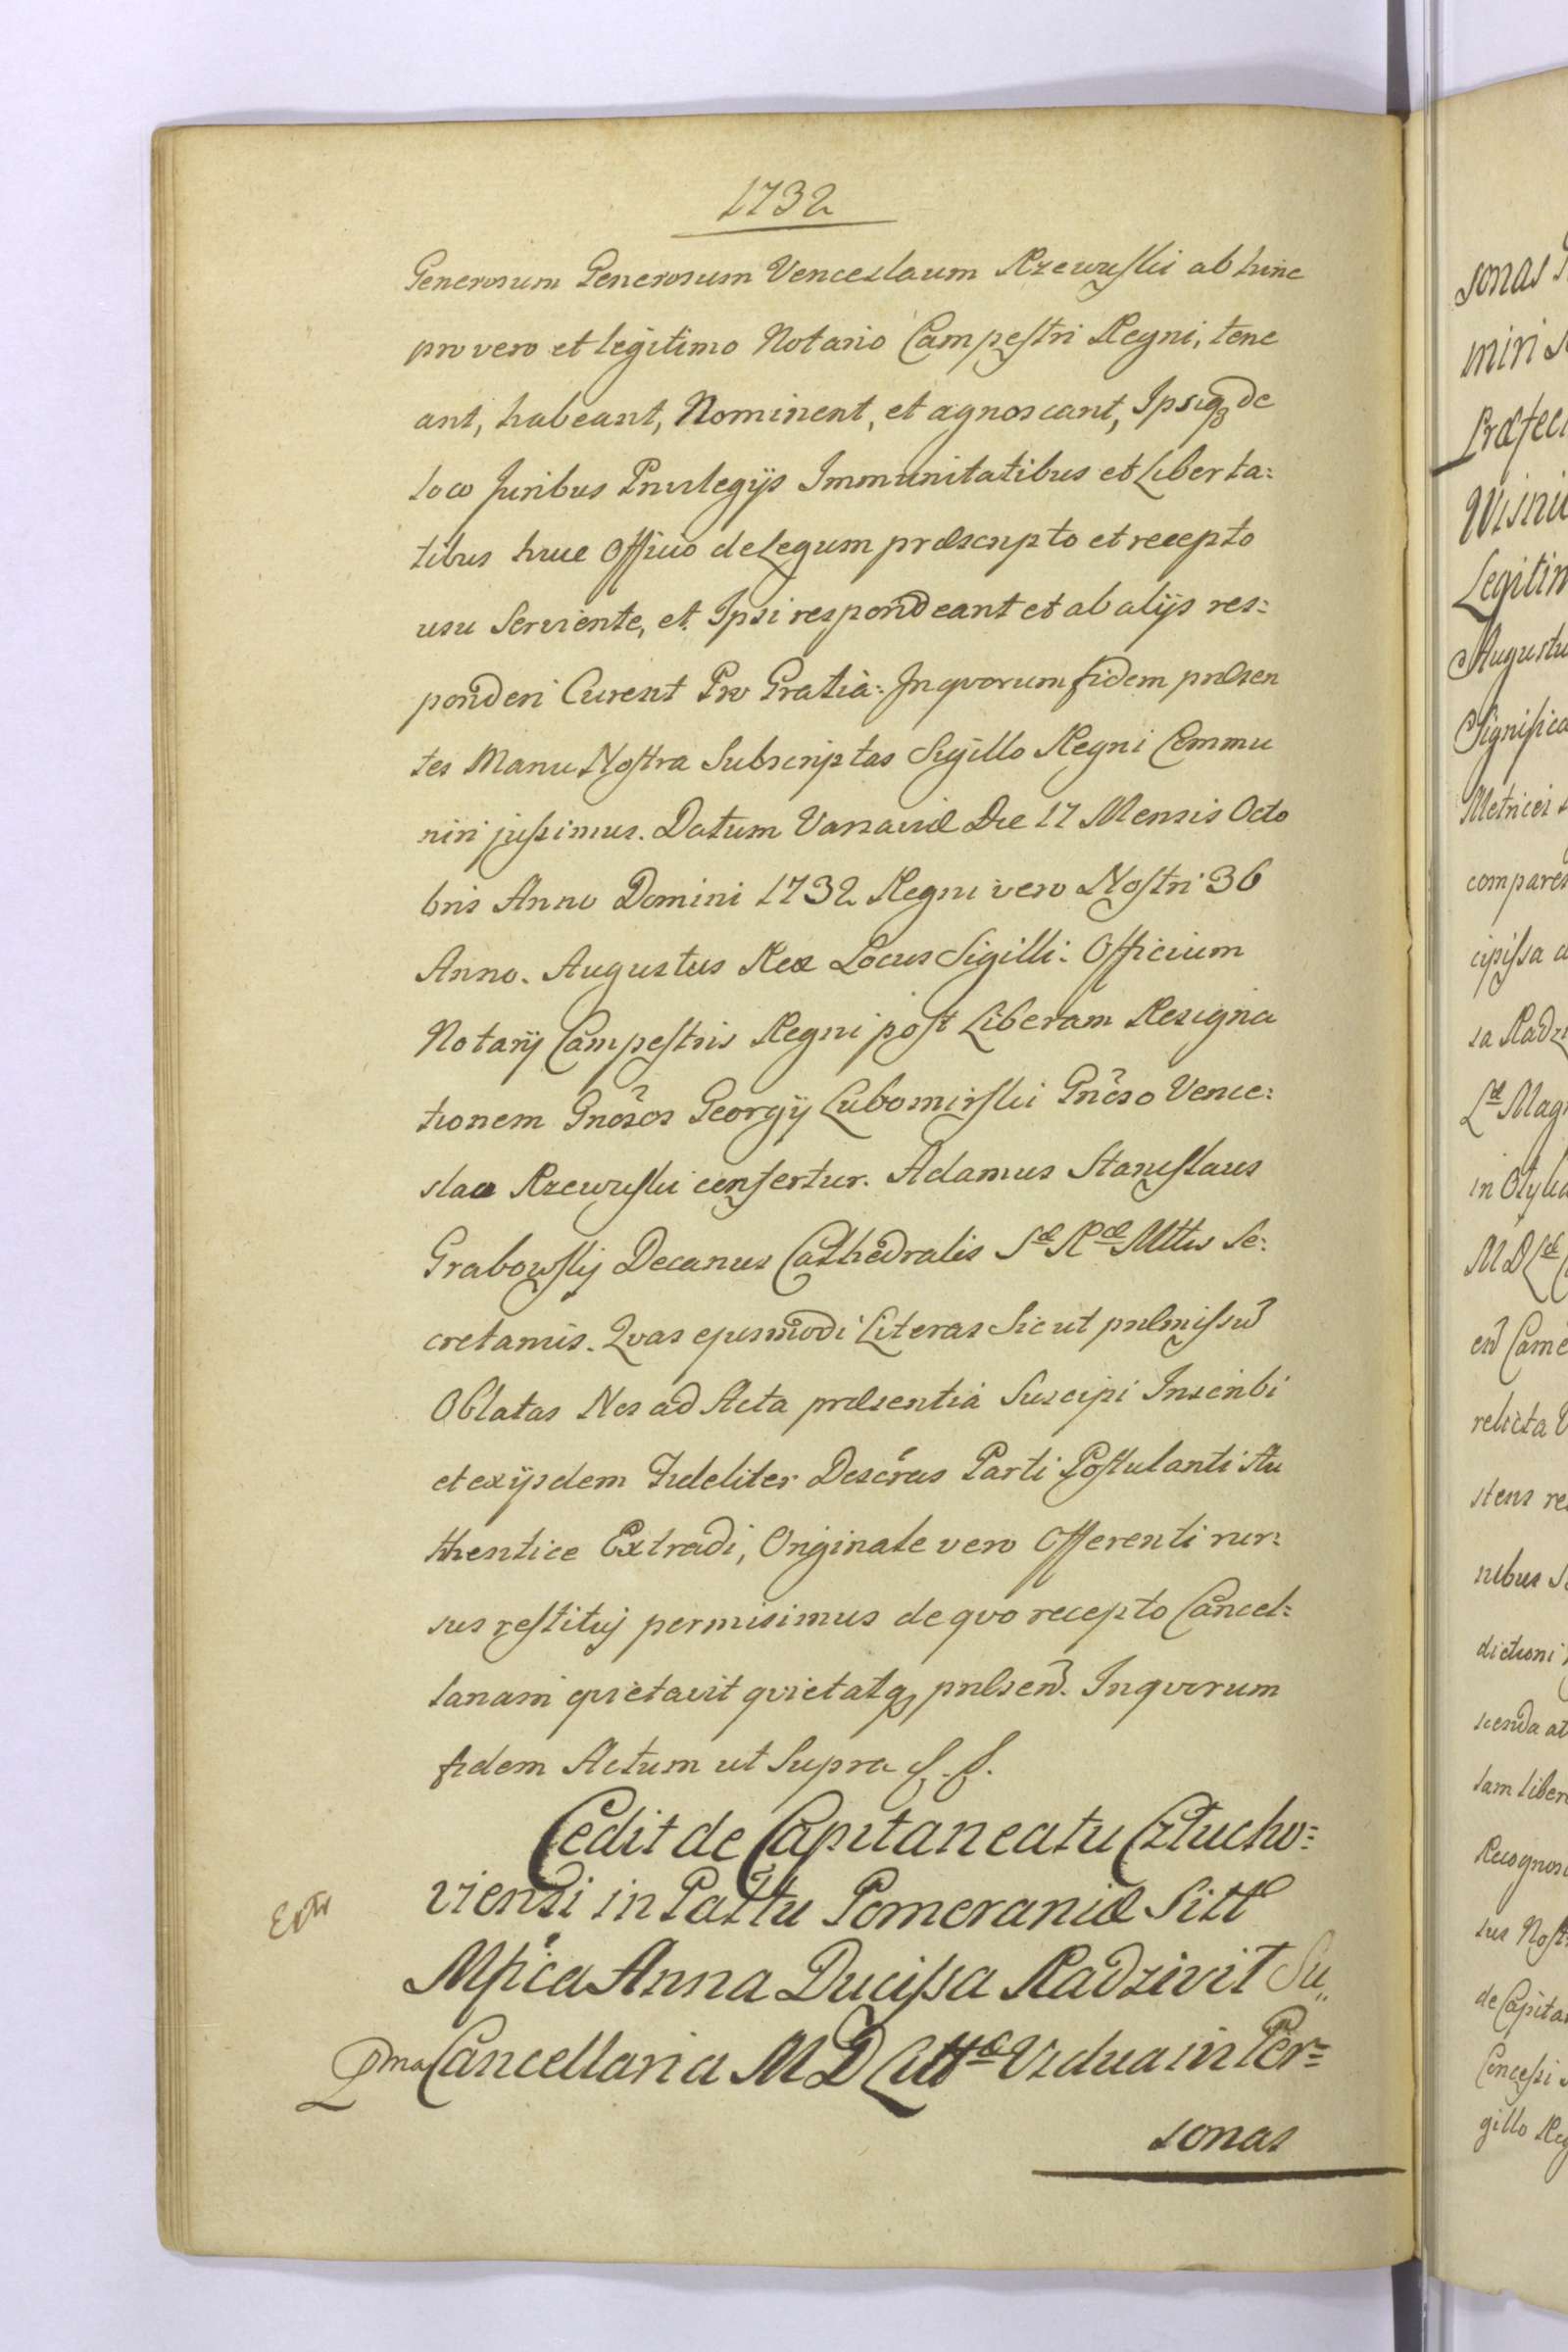 1732
Generosum Generosum Venceslaum Rzewuski ab hinc
pro vero et legitimo Notario Campestri Regni, tene
ant, habeant, Nominent, et agnoscant, Ipsiq₃ de
loco Juribus Privilegijs Immunitatibus et Liberta=
tibus huic Officio de Legum præscripto et recepto
usu Serviente, et Ipsi respondeant et ab alijs res=
ponderi Curent Pro Gratia: In quorum fidem præsen
tes Manu Nostra Subscriptas Sigillo Regni Commu
niri jussimus. Datum Varsaviæ Die 17 Mensis Octo
bris Anno Domini 1732 Regni vero Nostri 36
Anno. Augustus Rex Locus Sigilli: Officium
Notarij Campestris Regni post Liberam Resigna
tionem Gnosos Georgij Lubomirski Gnoso Vence=
slao Rzewuski confertur. Adamus Stanislaus
Grabowskij Decanus Cathedralis Sæ Ræ Mttis Se=
cretarius. Qvas ejusmodi Literas Sicut præmissu
Oblatas Nos ad Acta præsentia Suscipi Inscribi
et ex ijsdem Fideliter Descras Parti Postulanti Au
thentice Extradi, Originale vero Offerenti rur=
sus restituj permisimus de qvo recepto Cancel=
lariam qvietavit qvietatq₃ præsen. In qvorum
fidem Actum ut Supra
Cedit de Capitaneatu Człucho=
viensi in Pattu Pomeraniæ Sitto
Mfica Anna Ducissa Radzivił Su„
pma Cancellaria M D Littæ Vidua in Per=
sonas
sonas
miri
Præfec
Wisni
Legitim
Augustu
Significa
Metrices
compares
cipissa
sa Radzi
Læ Mag
in Otylia
M D Læ
en Came
relicta
stens re
nibus
dictioni
scenda at
tam liber
Recognos
sus Nost
de Capita
Concessi
gillo Reg